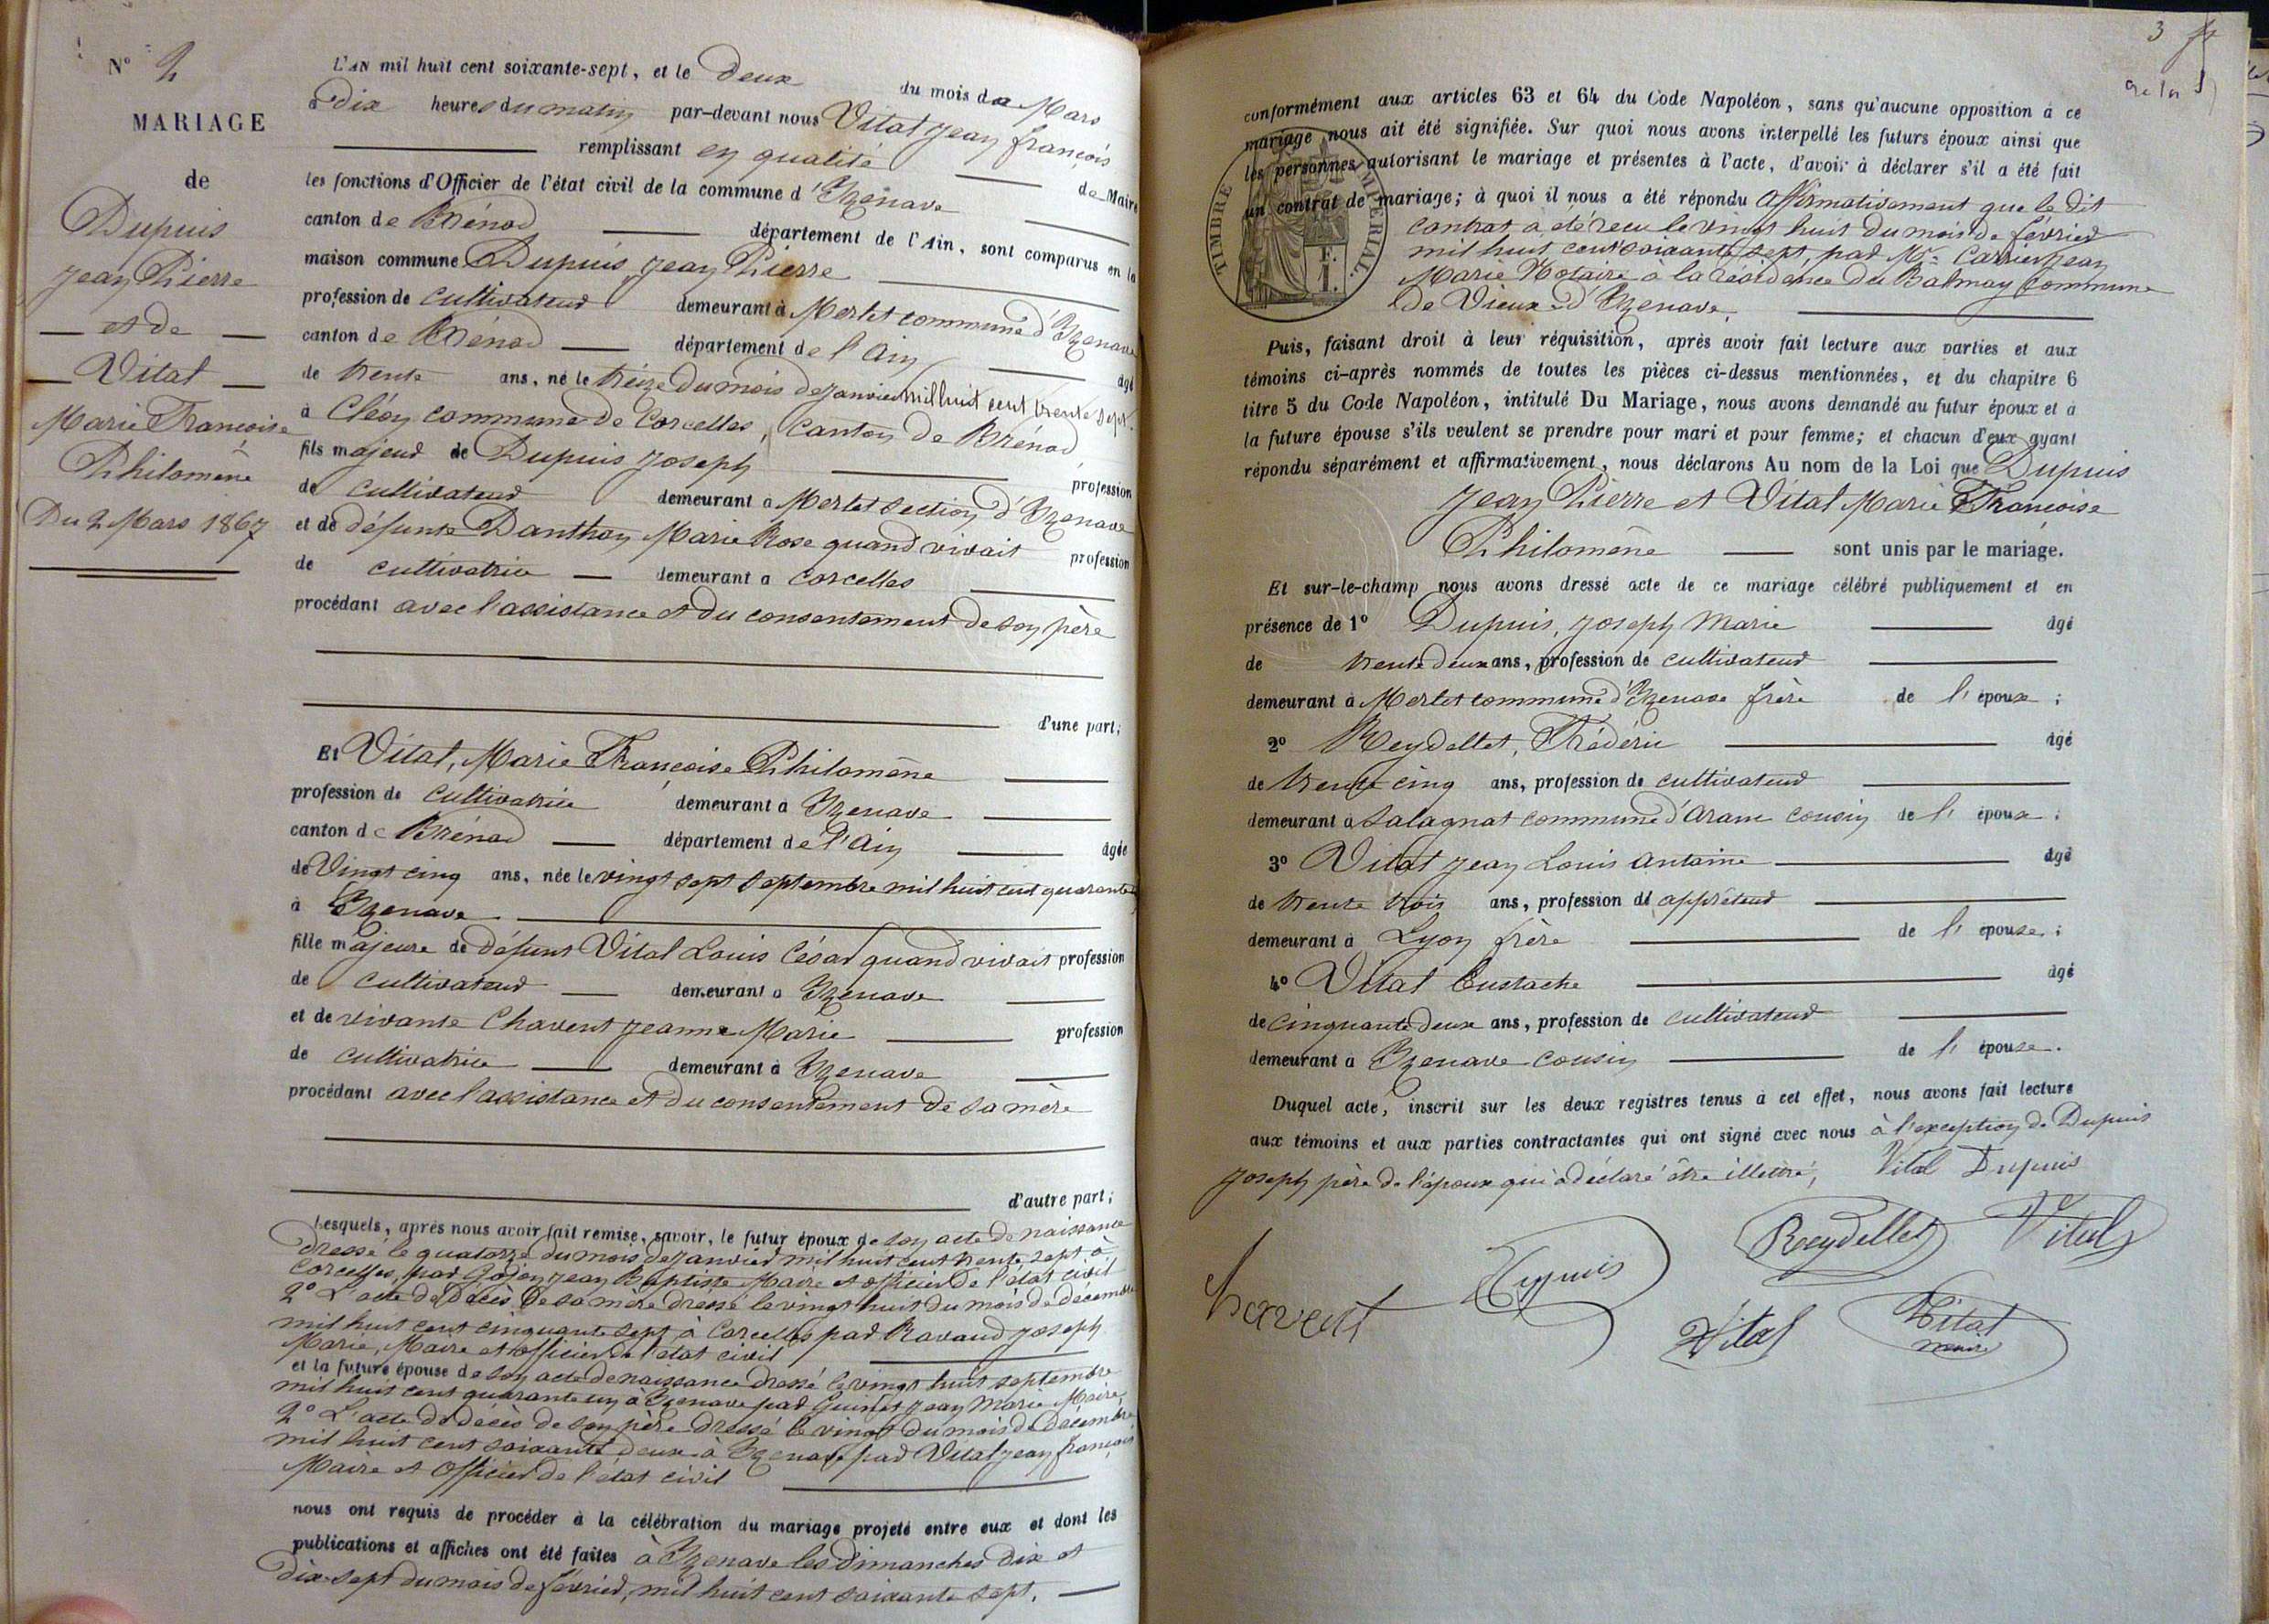 N° 2
MARIAGE
de
Dupuis
Jean Pierre
et de
Vital
Marie Françoise
Philomène
Du 2 Mars 1867
L'AN mil huit cent soixante-sept, et le Deux du mois de Mars
à Dix heures du matin par-devant nous Vital Jean françois
remplissant en qualité de Maire
les fonctions d'Officier de l'état civil de la commune d'Izenave
canton de Brénod département de l'Ain, sont comparus en la
maison commune Dupuis Jean Pierre
profession de cultivateur demeurant à Merlet commune d'Izenave
canton de Brénod département de l'Ain âgé
de trente ans, né le treize du mois de janvier mil huit cent trente sept
à Cléon commune de Corcelles, canton de Brénod
fils majeur de Dupuis Joseph profession
de cultivateur demeurant à Merlet section d'Izenave
et de défunte Danthon Marie Rose quand vivait profession
de cultivatrice demeurant à Corcelles
procédant avec l'assistance et du consentement de son père
d'une part;
Et Vital, Marie Françoise Philomène
profession de cultivatrice demeurant à Izenave
canton de Brénod département de l'Ain âgée
de Vingt cinq ans, née le vingt sept septembre mil huit cent quarante
à Izenave
fille majeure de défunt Vital Louis César quand vivait profession
de cultivateur demeurant à Izenave
et de vivante Chavent Jeanne Marie profession
de cultivatrice demeurant à Izenave
procédant avec l'assistance et du consentement de sa mère
d'autre part;
Lesquels, après nous avoir fait remise, savoir, le futur époux de son acte de naissance
dressé le quatorze du mois de janvier mil huit cent trente sept à
Corcelles, par Jean Baptiste Maire et officier de l'état civil
2° L'acte de Décès de sa mère dressé le vingt huit du mois de décembre
mil huit cent cinquante sept à Corcelles par Ravaud Joseph
Marie, Maire et officier de l'état civil
et la future épouse de son acte de naissance dressé le vingt huit septembre
mil huit cent quarante un à Izenave par Guinet Jean Marie Maire
2° L'acte de décès de son père dressé le vingt du mois de décembre
mil huit cent soixante deux à Izenave par Vital Jean françois
Maire et Officier de l'état civil
nous ont requis de procéder à la célébration du mariage projeté entre eux et dont les
publications et affiches ont été faites à Izenave les Dimanches dix et
dix-sept du mois de février, mil huit cent soixante sept.
3
conformément aux articles 63 et 64 du Code Napoléon, sans qu'aucune opposition à ce
mariage nous ait été signifiée. Sur quoi nous avons interpellé les futurs époux ainsi que
les personnes autorisant le mariage et présentes à l'acte, d'avoir à déclarer s'il a été fait
un contrat de mariage; à quoi il nous a été répondu affirmativement que le dit
contrat a été reçu le vingt huit du mois de février
mil huit cent soixante sept, par Mr. Carrier Jean
Marie Notaire à la résidence du Balmay commune
de Vieux-d'Izenave.
TIMBRE IMPÉRIAL.
Puis, faisant droit à leur réquisition, après avoir fait lecture aux parties et aux
témoins ci-après nommés de toutes les pièces ci-dessus mentionnées, et du chapitre 6
titre 5 du Code Napoléon, intitulé Du Mariage, nous avons demandé au futur époux et à
la future épouse s'ils veulent se prendre pour mari et pour femme; et chacun d'eux ayant
répondu séparément et affirmativement, nous déclarons Au nom de la Loi que Dupuis
Jean Pierre et Vital Marie Françoise
Philomène sont unis par le mariage.
Et sur-le-champ nous avons dressé acte de ce mariage célébré publiquement et en
présence de 1° Dupuis, Joseph Marie âgé
de trente deux ans, profession de cultivateur
demeurant à Merlet commune d'Izenave frère de l'époux;
2° Reydellet, Frédéric âgé
de trente cinq ans, profession de cultivateur
demeurant à Salagnat commune d'Aranc cousin de l'époux;
3° Vital Jean Louis Antoine âgé
de trente trois ans, profession de apprêteur
demeurant à Lyon frère de l'épouse;
4° Vital Eustache âgé
de cinquante deux ans, profession de cultivateur
demeurant à Izenave cousin de l'épouse.
Duquel acte, inscrit sur les deux registres tenus à cet effet, nous avons fait lecture
aux témoins et aux parties contractantes qui ont signé avec nous à l'exception de Dupuis
Joseph père de l'époux qui a déclaré être illettré,
Vital Dupuis
Reydellet Vital
Chavent Dupuis
Vital Vital
maire